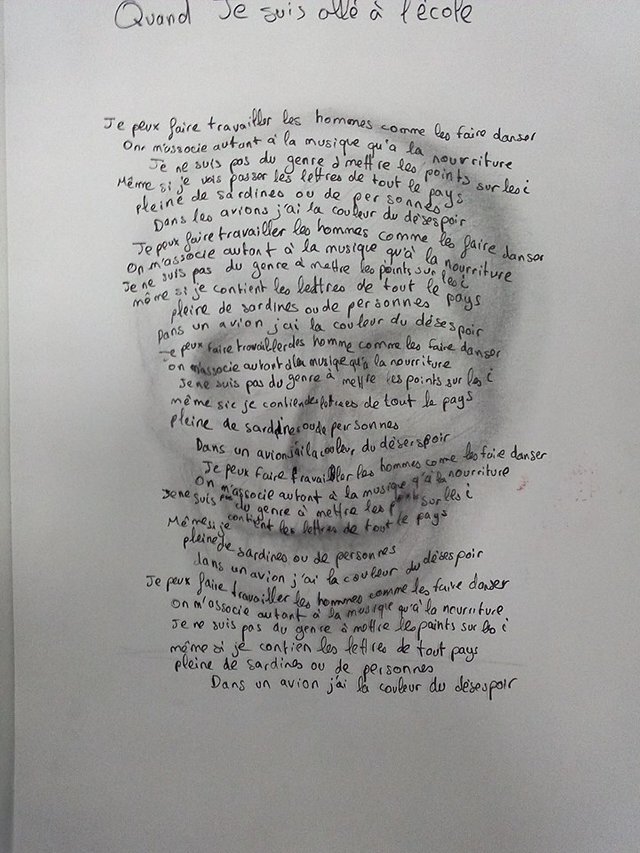 Quand Je suis allé à l'école
Je peux faire travailler les hommes comme les faire danser
On m'associe autant à la musique qu'à la nourriture
Je ne suis pas du genre à mettre les points sur les i
Même si je vais passer les lettres de tout le pays
pleine de sardines ou de personnes
Dans les avions j'ai la couleur du désespoir
Je peux faire travailler les hommes comme les faire danser
On m'associe autant à la musique qu'à la nourriture
Je ne suis pas du genre à mettre les points sur les i
même si je contient les lettres de tout le pays
pleine de sardines ou de personnes
Dans un avion j'ai la couleur du désespoir
Je peux faire travailler des homme comme les faire danser
on m'associe autant à la musique qu'à la nourriture
Je ne suis pas du genre à mettre les points sur les i
même si je contien les lettres de tout le pays
pleine de sardines ou de personnes
Dans un avion j'ai la couleur du déserspoir
Je peux faire travailler les hommes come les faie danser
On m'associe autant à la musique qu'à la nourriture
Je ne suis pas du genre à mettre les points sur les i
Même si je contient les lettres de tout le pays
pleine de sardines ou de personnes
dans un avion j'ai la couleur du désespoir
Je peux faire travailler les hommes comme les faire danser
On m'associe autant à la musique qu'à la nourriture
Je ne suis pas du genre à mettre les points sur les i
même si je contien les lettres de tout pays
pleine de sardines ou de personnes
Dans un avion j'ai la couleur du désespoir